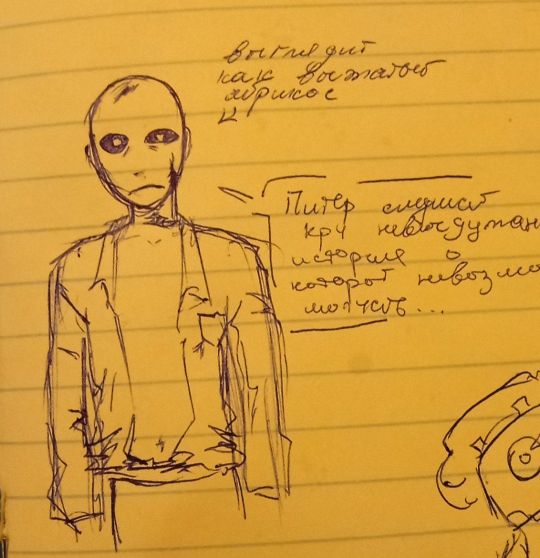 выглядит
как выжатый
абрикос
Питер слушай
крч невыдуман
история о
которой невозмо
молчать...